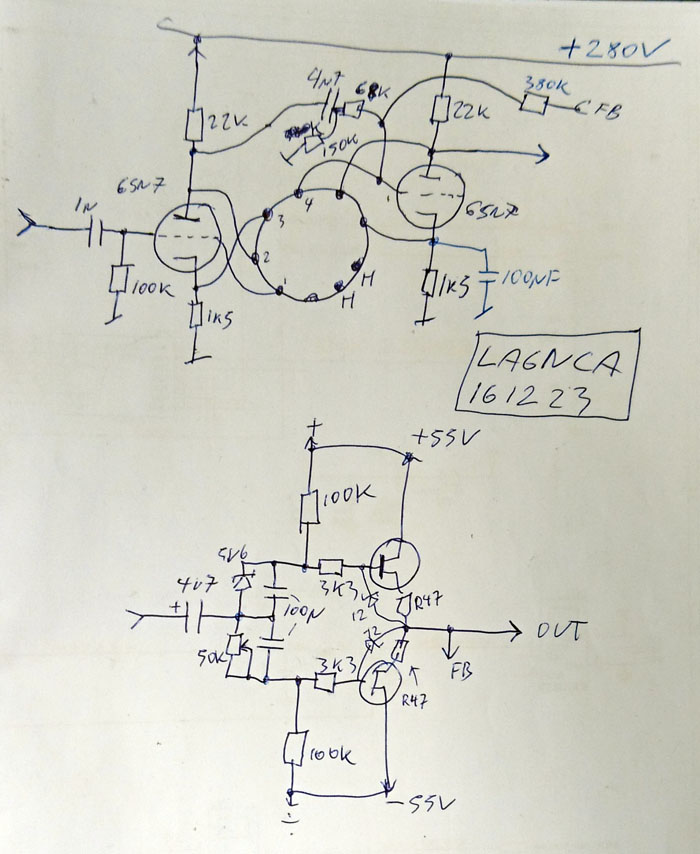 +280V
4n7
68K
380K
FB
22K
150K
22K
6SN7
6SN7
1N
100K
1K5
1
2
3
4
H
H
1K5
100NF
LA6NCA
161223
+
+55V
100K
5V6
3K3
4u7
100N
12
R47
OUT
50K
12
FB
3K3
R47
100K
-55V